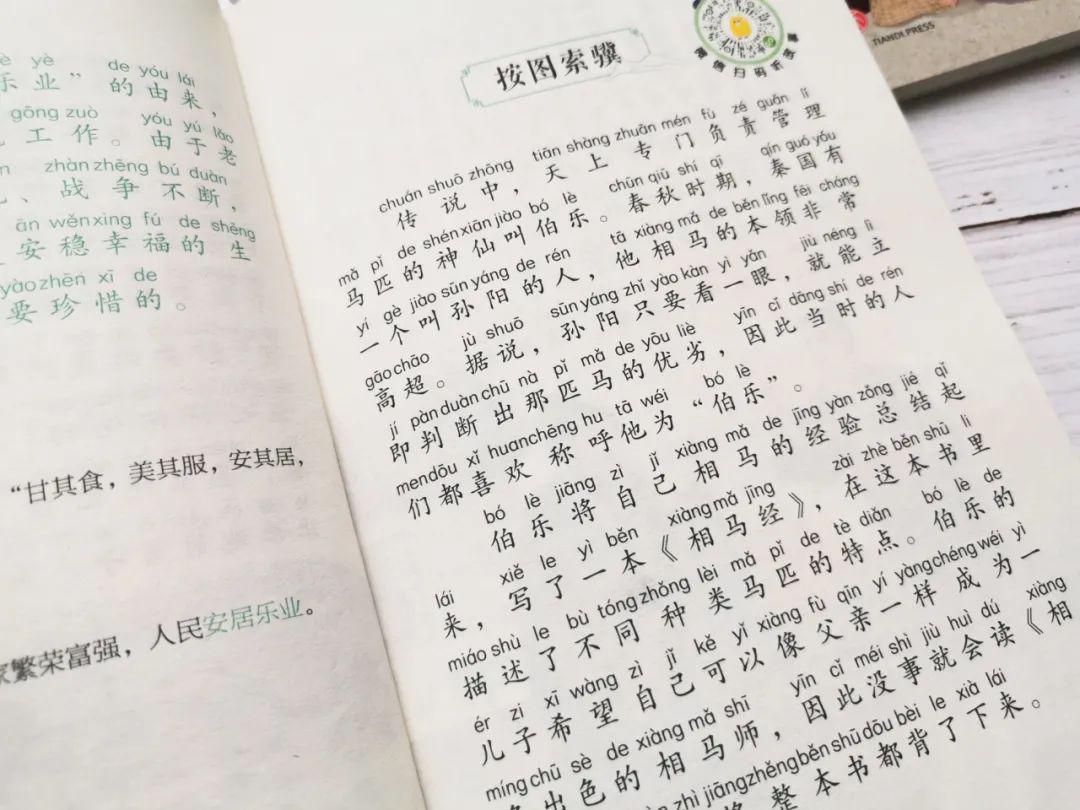 è yè de yóu lái
乐业”的由来，
gōng zuò yóu yú lǎo
工作。由于老
zhàn zhēng bú duàn
、战争不断，
ān wěn xìng fú de shēng
安稳幸福的生
yào zhēn xī de
要珍惜的。
“甘其食，美其服，安其居，
繁荣富强，人民安居乐业。
按图索骥
微信扫码听故事
TIANDI PRESS
chuán shuō zhōng tiān shàng zhuān mén fù zé guǎn lǐ
传说中，天上专门负责管理
mǎ pǐ de shén xiān jiào bó lè chūn qiū shí qī qín guó yǒu
马匹的神仙叫伯乐。春秋时期，秦国有
yí gè jiào sūn yáng de rén tā xiàng mǎ de běn lǐng fēi cháng
一个叫孙阳的人，他相马的本领非常
gāo chāo jù shuō sūn yáng zhǐ yào kàn yì yǎn jiù néng lì
高超。据说，孙阳只要看一眼，就能立
jí pàn duàn chū nà pǐ mǎ de yōu liè yīn cǐ dāng shí de rén
即判断出那匹马的优劣，因此当时的人
men dōu xǐ huan chēng hu tā wéi bó lè
们都喜欢称呼他为“伯乐”。
bó lè jiāng zì jǐ xiàng mǎ de jīng yàn zǒng jié qǐ
伯乐将自己相马的经验总结起
lái xiě le yì běn xiàng mǎ jīng zài zhè běn shū lǐ
来，写了一本《相马经》，在这本书里
miáo shù le bù tóng zhǒng lèi mǎ pǐ de tè diǎn bó lè de
描述了不同种类马匹的特点。伯乐的
ér zi xī wàng zì jǐ kě yǐ xiàng fù qīn yí yàng chéng wéi yì
儿子希望自己可以像父亲一样成为一
míng chū sè de xiàng mǎ shī yīn cǐ méi shì jiù huì dú xiàng
名出色的相马师，因此没事就会读《相
zhì jiāng zhěng běn shū dōu bèi le xià lái
将整本书都背了下来。